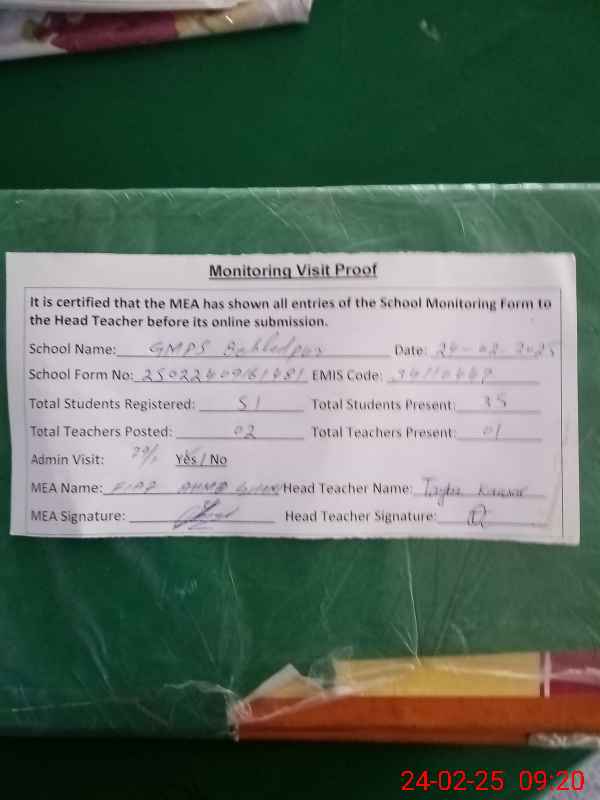 Monitoring Visit Proof
It is certified that the MEA has shown all entries of the School Monitoring Form to
the Head Teacher before its online submission.
School Name: GMPS Date: 24-02-2025
School Form No: EMIS Code:
Total Students Registered: 51 Total Students Present: 35
Total Teachers Posted: 02 Total Teachers Present: 01
Admin Visit: Yes/No
MEA Name: Head Teacher Name:
MEA Signature: Head Teacher Signature:
24-02-25 09:20